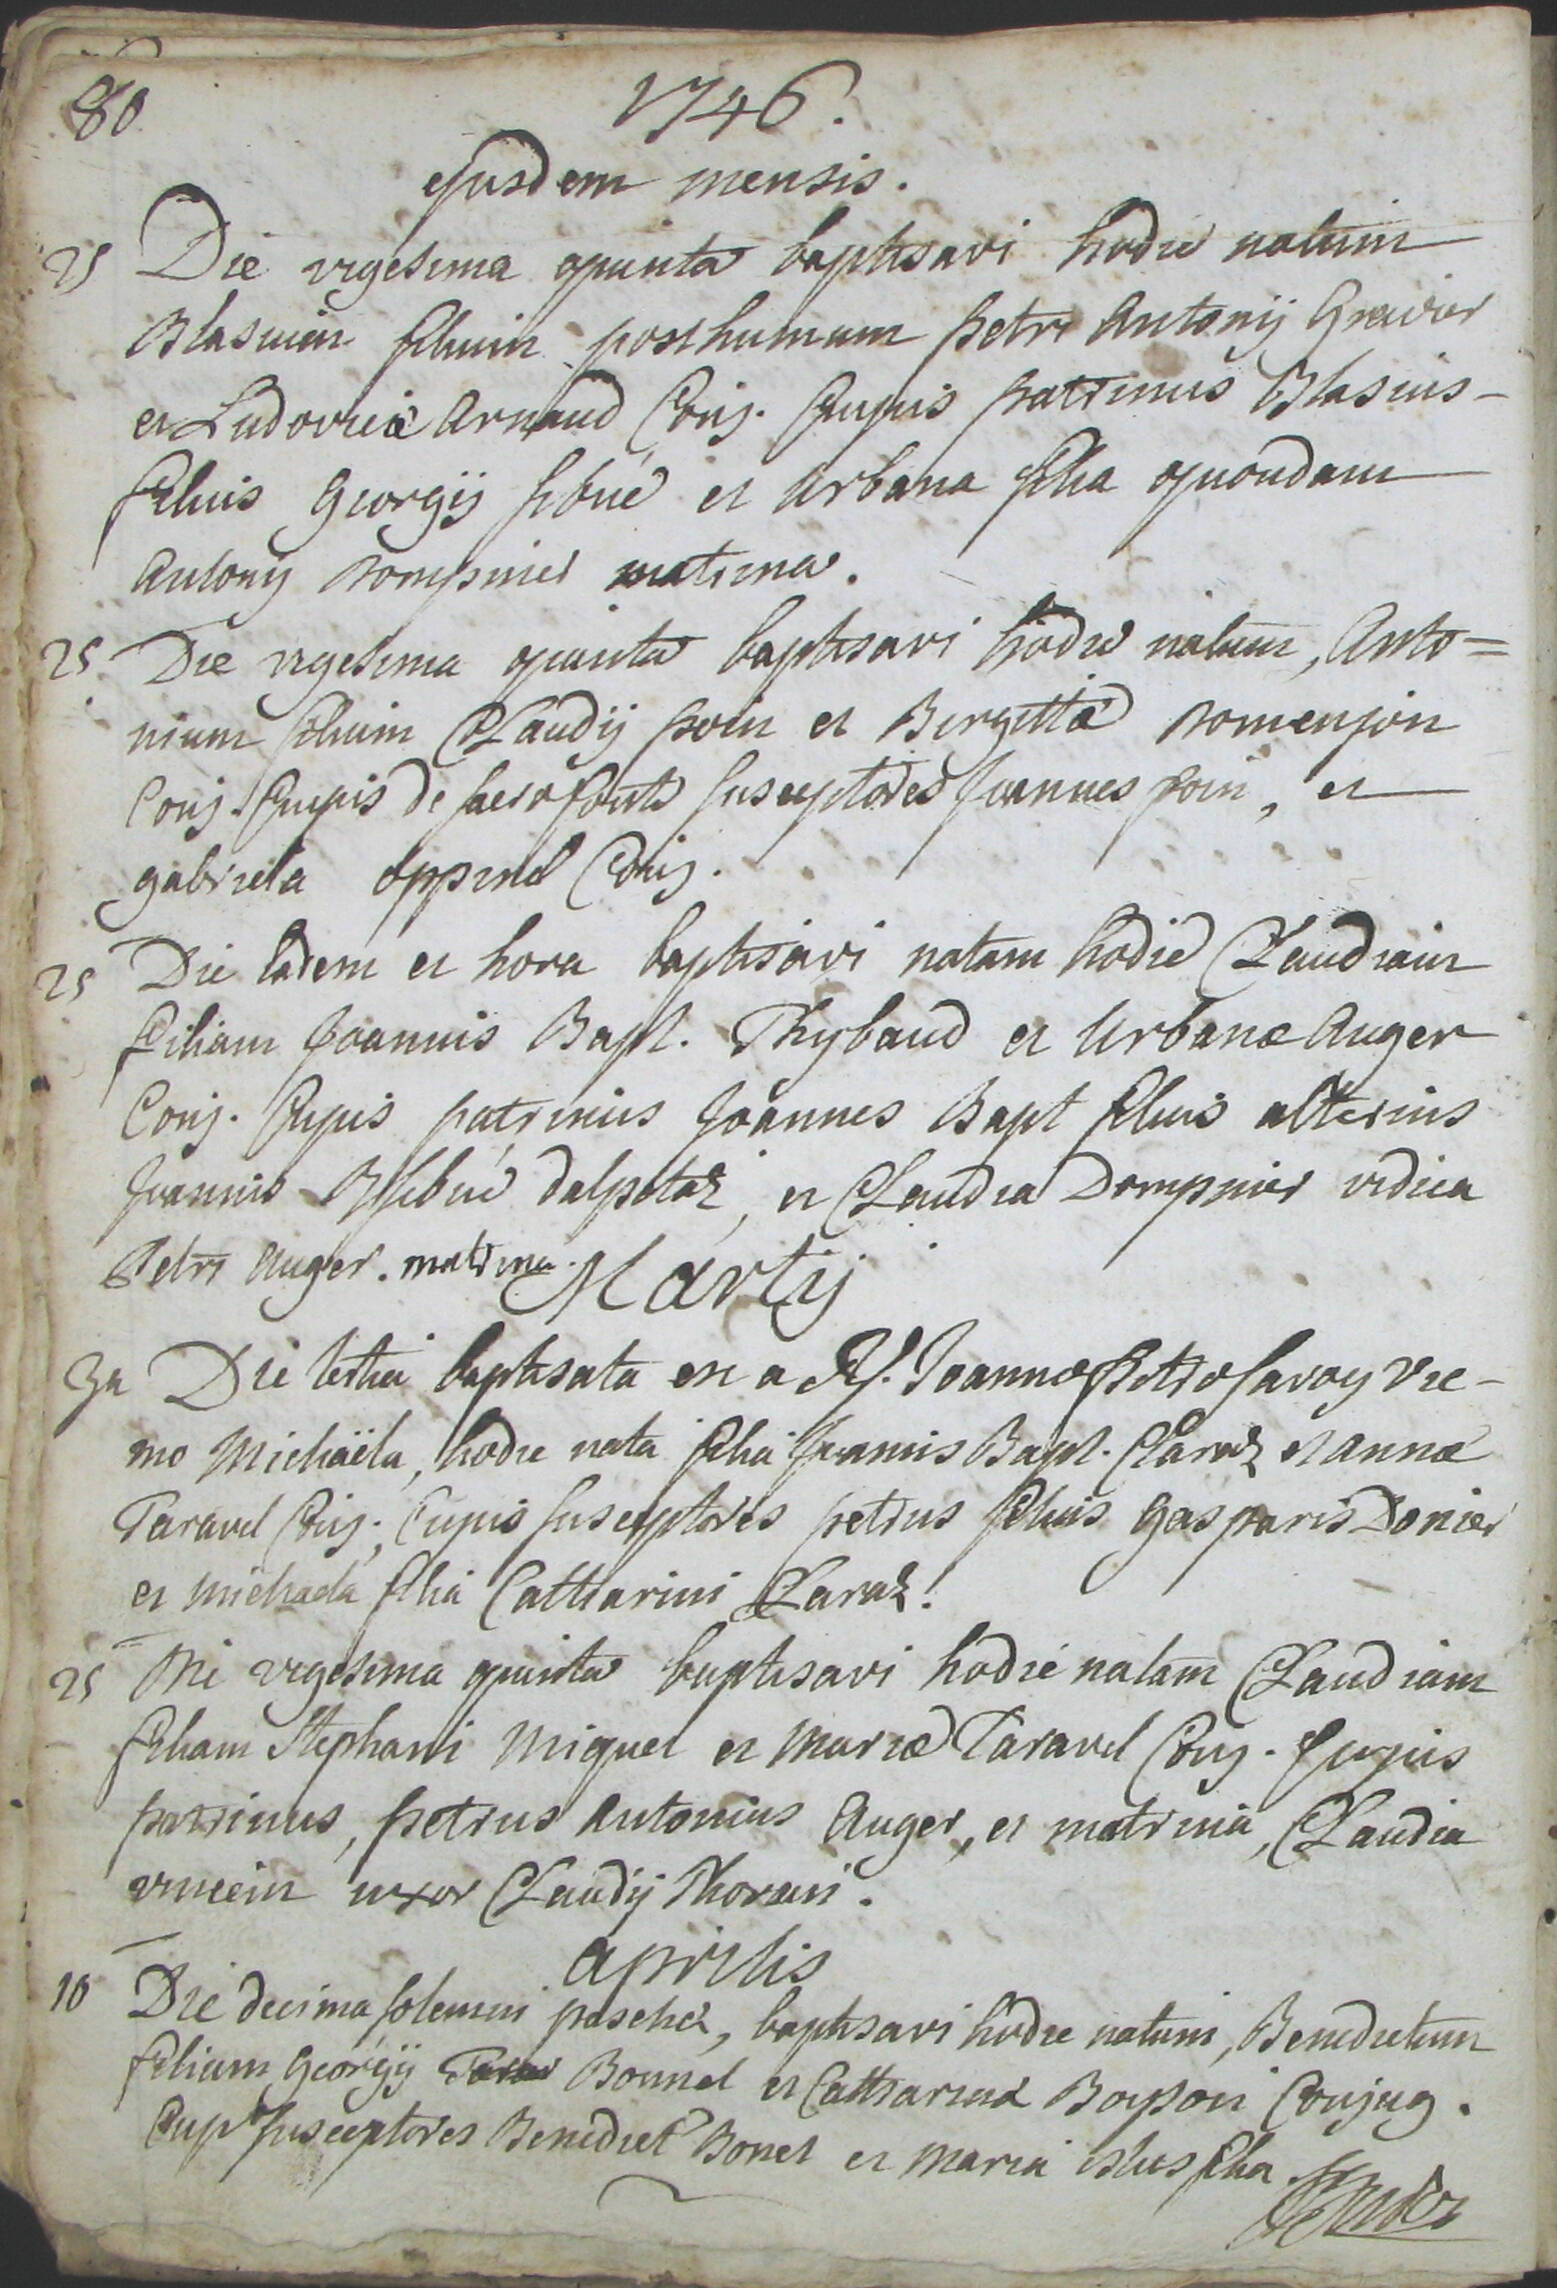 80
1746.
ejusdem mensis.
25 Die vigesima quinta baptisavi hodie natum
Blasium filium posthumum petri Antonij Gravier
et Ludovicæ Arnaud Conj. Cujus patrinus Blasius
filius Georgij sibué et Urbana filia quondam
Antonij Dompnier matrina.
25 Die vigesima quinta baptisavi hodie natum, Anto=
nium filium Claudij poin et Birgittæ Domenjon
Conj. Cujus de sacro fonte susceptores Joannes poin, et
gabriela oppinel Conj.
25 Die eadem et hora baptisavi natam hodie Claudiam
filiam Joannis Bapt. Thybaud et Urbanæ Auger
Conj. Cujus patrinus Joannes Bapt filius alterius
Joannis sibué dalpetaz, et Claudia Dompnier vidua
Petri Auger. matrina.
Martij
3a Die tertia baptisata est a Rd. Joanne petro savoy vie-
mo Michaëla, hodie nata filia Joannis Bapt. Claraz et annæ
Taravel Conj. Cujus susceptores petrus filius Gasparis Donier
et michaela filia Catharini Claraz.
25 Die vigesima quinta baptisavi hodie natam Claudiam
filiam Stephani Miquel et Mariæ Taravel Conj. Cujus
patrinus, petrus Antonius Auger, et matrina, Claudia
vincein uxor Claudij Thorein.
aprilis
10 Die decima solemni paschæ, baptisavi hodie natum, Benedictum
filium Georgij Bonnel et Catharinæ Boyson Conjug.
Cuj susceptores Benedict Bonel et Maria filia